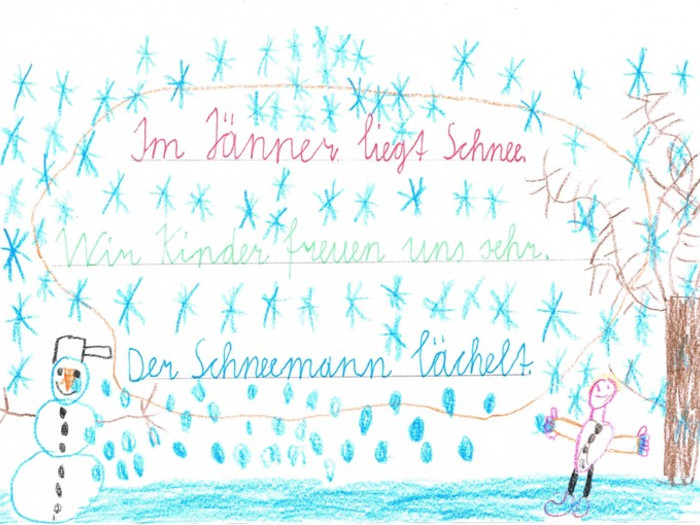 Im Jänner liegt Schnee.
Wir Kinder freuen uns sehr.
Der Schneemann lächelt.